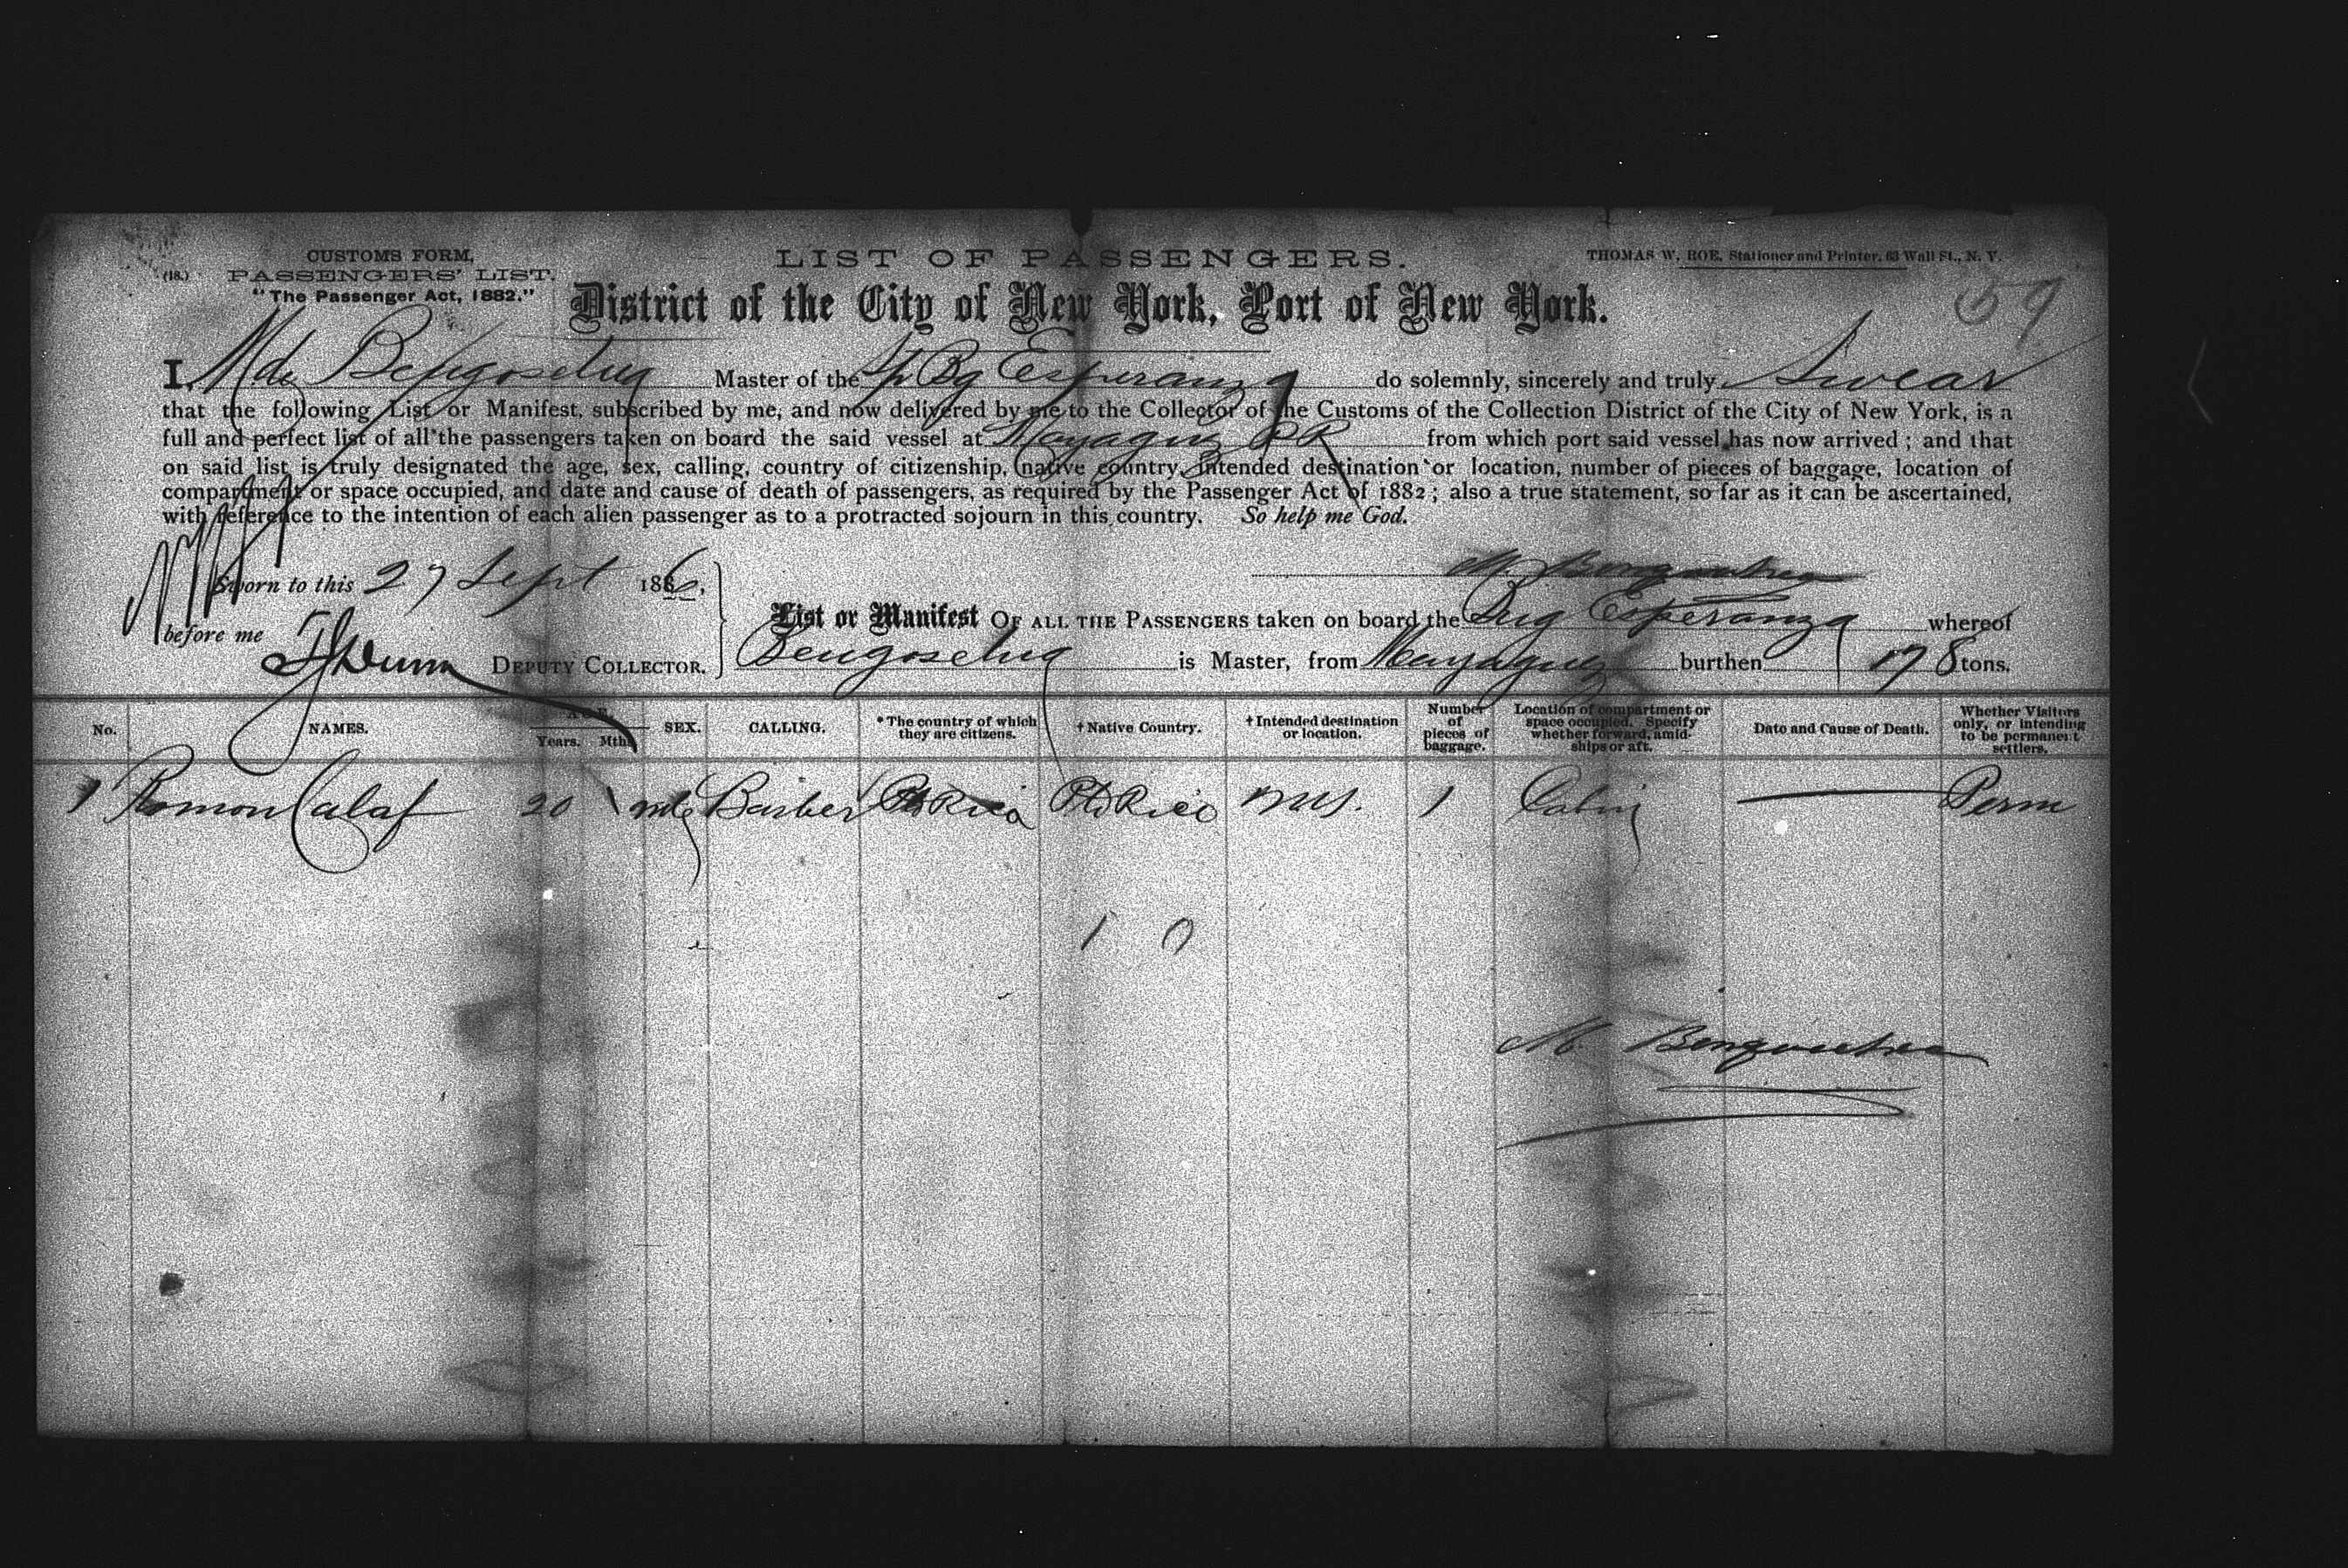 CUSTOMS FORM,
(18.) PASSENGERS' LIST.
"The Passenger Act, 1882."
LIST OF PASSENGERS.
THOMAS W. ROE, Stationer and Printer, 63 Wall St., N. Y.
59
District of the City of New York, Port of New York.
I, M de Master of the Sp Bg Esperanza do solemnly, sincerely and truly Swear
that the following List or Manifest, subscribed by me, and now delivered by me to the Collector of the Customs of the Collection District of the City of New York, is a
full and perfect list of all the passengers taken on board the said vessel at Mayaguez PR from which port said vessel has now arrived; and that
on said list is truly designated the age, sex, calling, country of citizenship, native country, intended destination or location, number of pieces of baggage, location of
compartment or space occupied, and date and cause of death of passengers, as required by the Passenger Act of 1882; also a true statement, so far as it can be ascertained,
with reference to the intention of each alien passenger as to a protracted sojourn in this country. So help me God.
Sworn to this 27 Sept 1886,
before me Dunn DEPUTY COLLECTOR.
List or Manifest OF ALL THE PASSENGERS taken on board the Brig Esperanza whereof
is Master, from Mayaguez burthen 178 tons.
No. NAMES. AGE. Years. Mths. SEX. CALLING. *The country of which they are citizens. †Native Country. †Intended destination or location. Number of pieces of baggage. Location of compartment or space occupied. Specify whether forward, amidships or aft. Date and Cause of Death. Whether Visitors only, or intending to be permanent settlers.
1 Ramon Calaf 20 mle Barber Pto Rico Pto Rico NY. 1 Cabin Perm
1 0